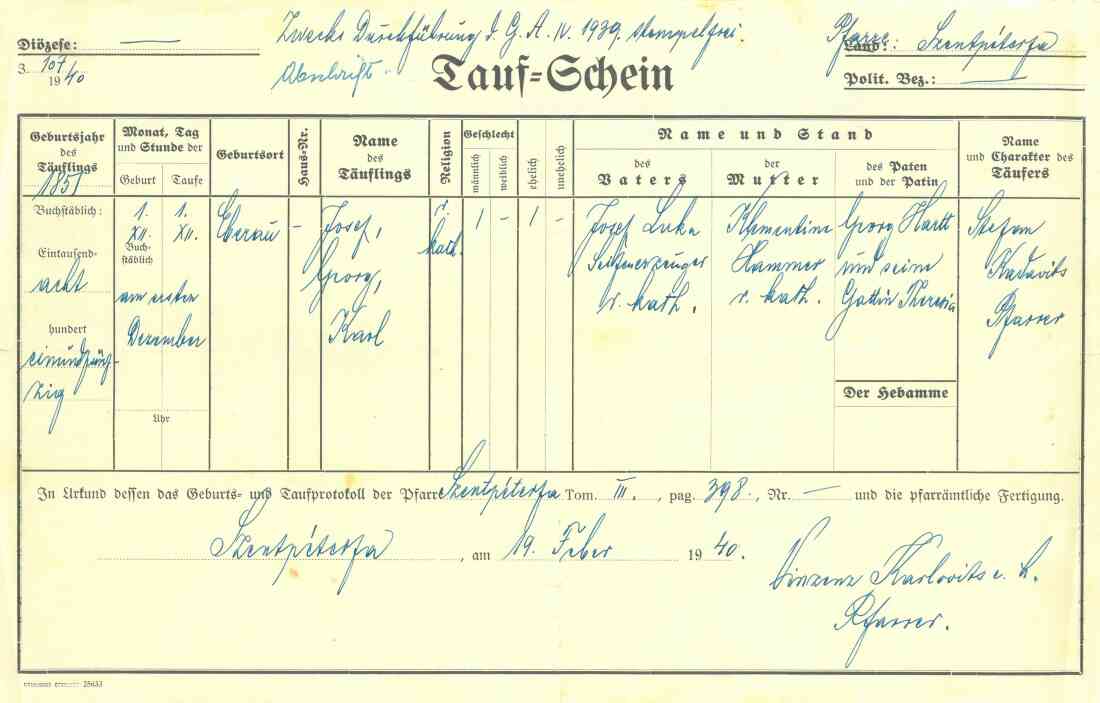 Zwecks Durchführung d. G. A. IV. 1939. stempelfrei.
Diözese: —
Pfarre: Szentpéterfa
Land:
3. 107
1940
Abschrift.
Tauf=Schein
Polit. Bez.: —
Geburtsjahr des Täuflings 1851
Monat, Tag und Stunde der
Geburt Taufe
Geburtsort
Haus-Nr.
Name des Täuflings
Religion
Geschlecht
männlich weiblich
ehelich unehelich
Name und Stand
des Vaters
der Mutter
des Paten und der Patin
Name und Charakter des Täufers
Buchstäblich:
Eintausend-
acht
hundert
einundfünf-
zig
1. 1.
XII. XII.
Buch-
stäblich
am ersten
Dezember
Uhr
Eberau
—
Josef,
Georg,
Karl
r.
kath.
1 — 1 —
Josef Luka
Seifenerzeuger
r. kath.
Klementine
Hammer
r. kath.
Georg Hartl
und seine
Gattin Theresia
Der Hebamme
Stefan
Kadavits
Pfarrer
In Urkund dessen das Geburts- und Taufprotokoll der Pfarre Szentpéterfa Tom. III., pag. 398., Nr. — und die pfarrämtliche Fertigung.
Szentpéterfa, am 19. Feber 1940.
Vinzenz Karlovits e. h.
Pfarrer.
25633